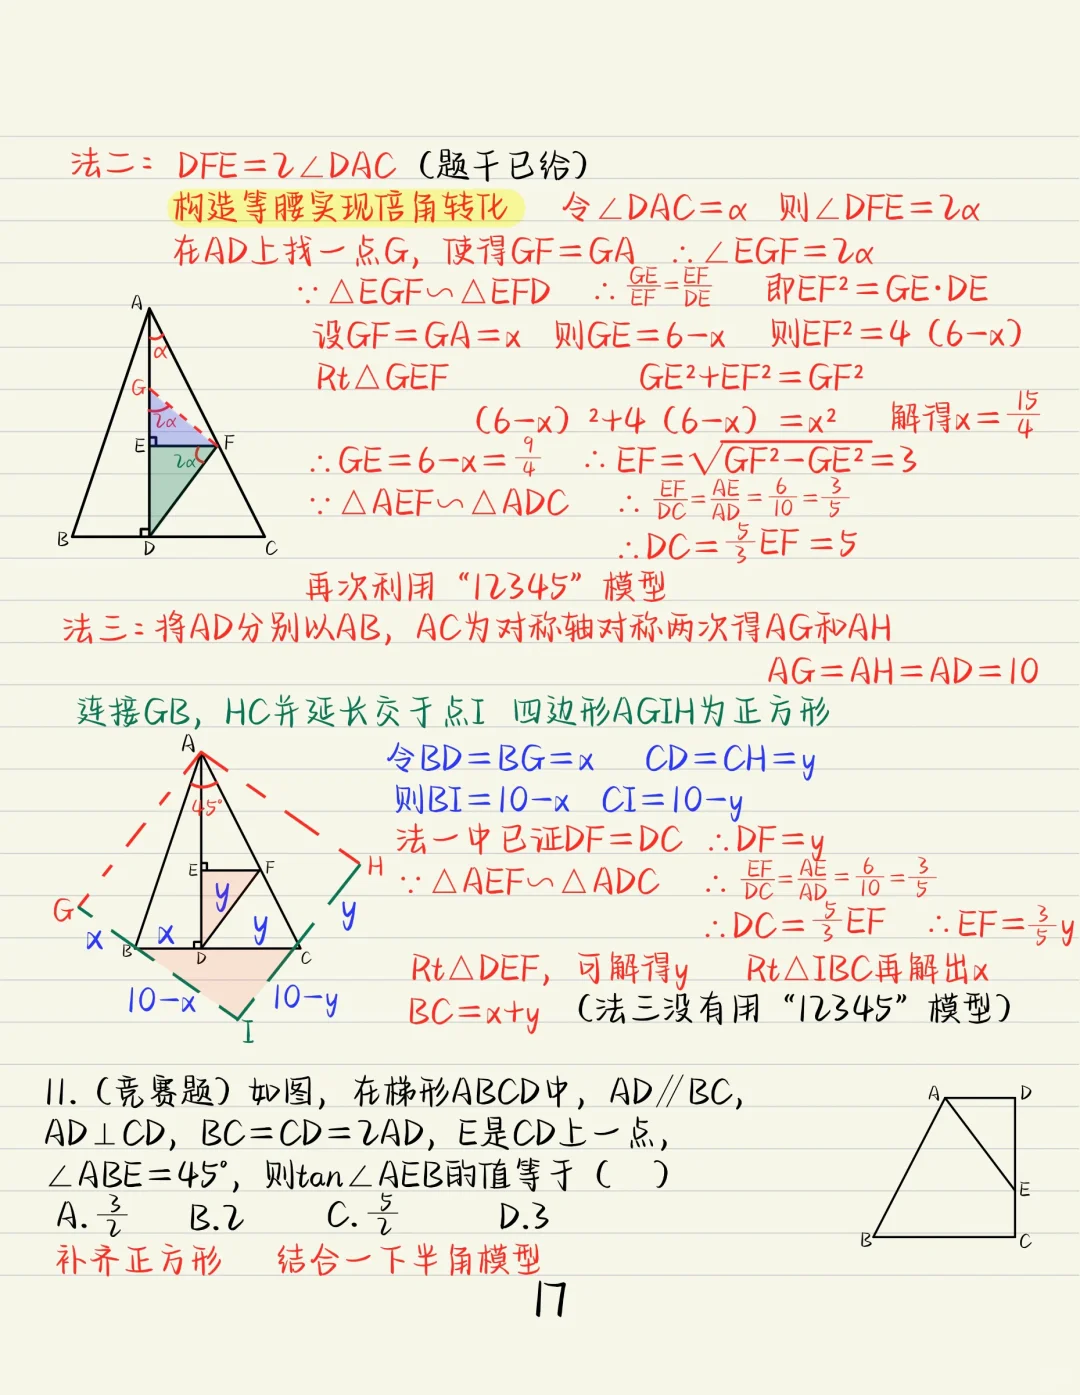 法二：DFE=2∠DAC（题干已给）
构造等腰实现倍角转化 令∠DAC=α 则∠DFE=2α
在AD上找一点G，使得GF=GA ∴∠EGF=2α
∵△EGF∽△EFD ∴GE/EF=EF/DE 即EF²=GE·DE
设GF=GA=x 则GE=6-x 则EF²=4（6-x）
Rt△GEF GE²+EF²=GF²
（6-x）²+4（6-x）=x² 解得x=15/4
∴GE=6-x=9/4 ∴EF=√GF²-GE²=3
∵△AEF∽△ADC ∴EF/DC=AE/AD=6/10=3/5
∴DC=5/3EF=5
再次利用“12345”模型
A
α
G
2α
E
F
2α
B
D
C
法三：将AD分别以AB，AC为对称轴对称两次得AG和AH
AG=AH=AD=10
连接GB，HC并延长交于点I 四边形AGIH为正方形
令BD=BG=x CD=CH=y
则BI=10-x CI=10-y
法一中已证DF=DC ∴DF=y
∵△AEF∽△ADC ∴EF/DC=AE/AD=6/10=3/5
∴DC=5/3EF ∴EF=3/5y
Rt△DEF，可解得y Rt△IBC再解出x
BC=x+y （法三没有用“12345”模型）
A
45°
E
F
H
y
G
y
x
x
y
B
D
C
10-x
10-y
I
11.（竞赛题）如图，在梯形ABCD中，AD∥BC，
AD⊥CD，BC=CD=2AD，E是CD上一点，
∠ABE=45°，则tan∠AEB的值等于（ ）
A.3/2 B.2 C.5/2 D.3
补齐正方形 结合一下半角模型
A
D
E
B
C
17